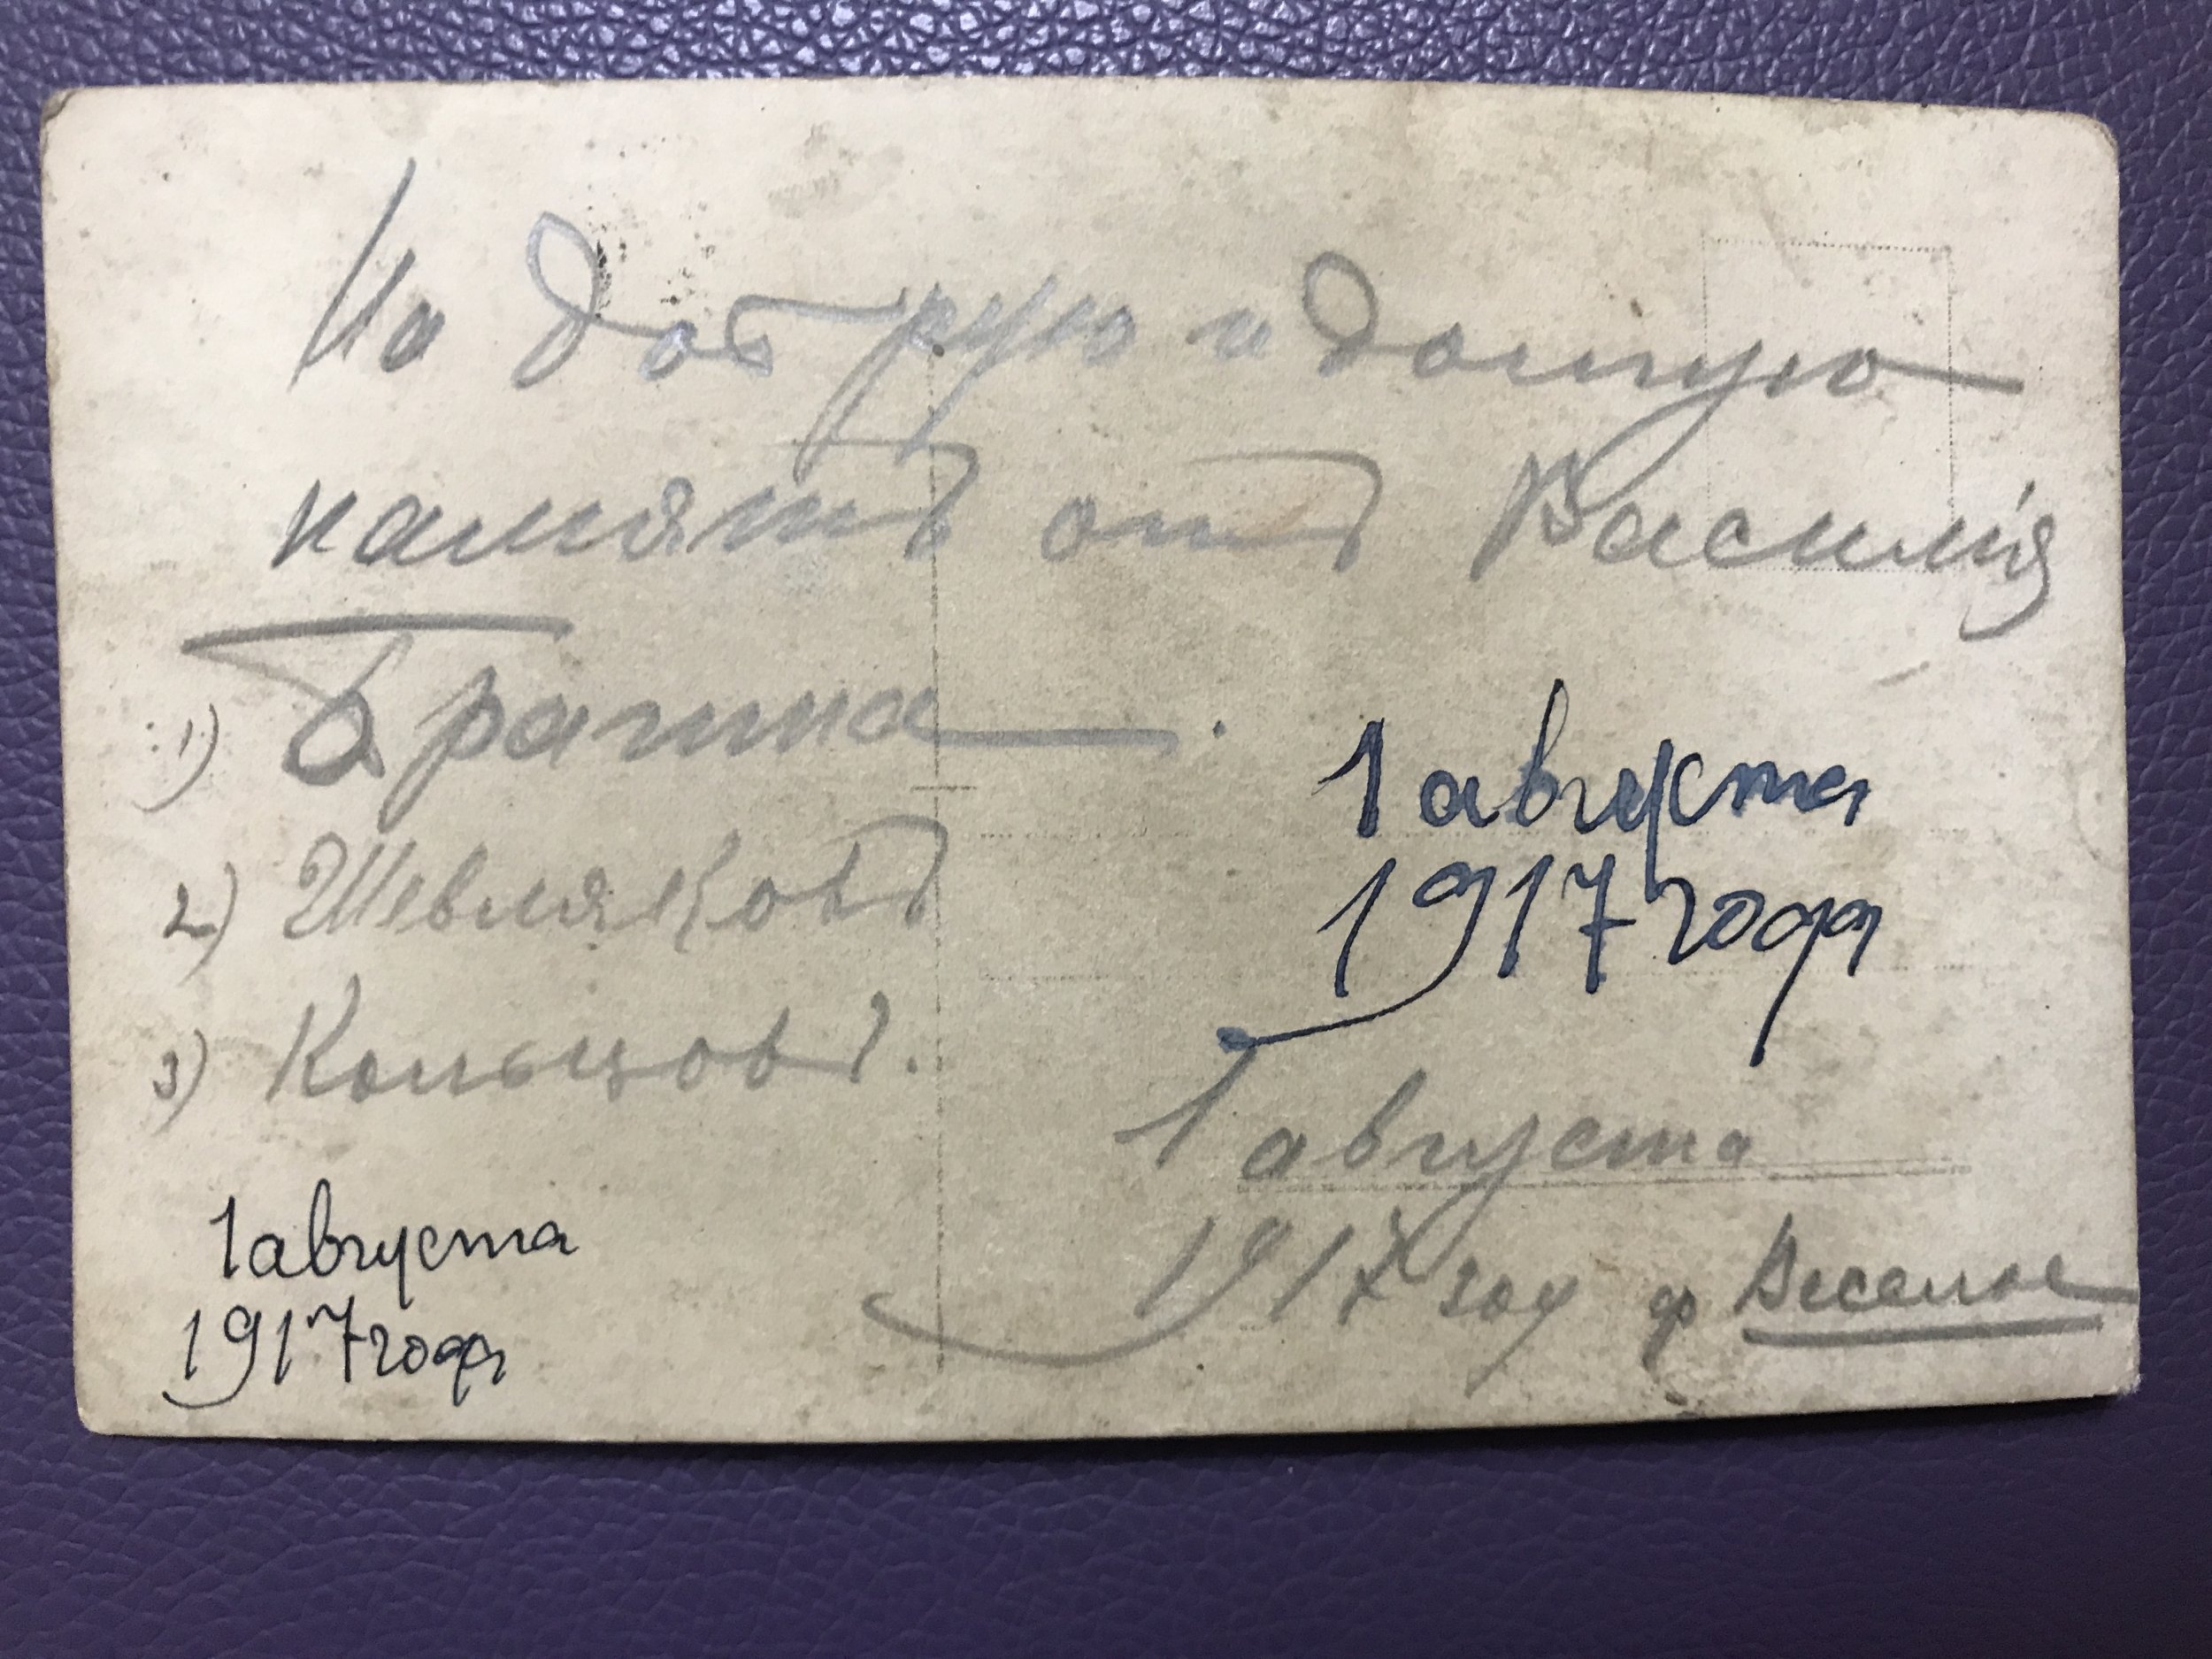 На добрую и долгую
память отъ Василія
1) Брагина.
2) Шевляковъ
3) Кольцовъ.
1 августа
1917 года
1 августа
1917 году ф Веселое
1 августа
1917 года